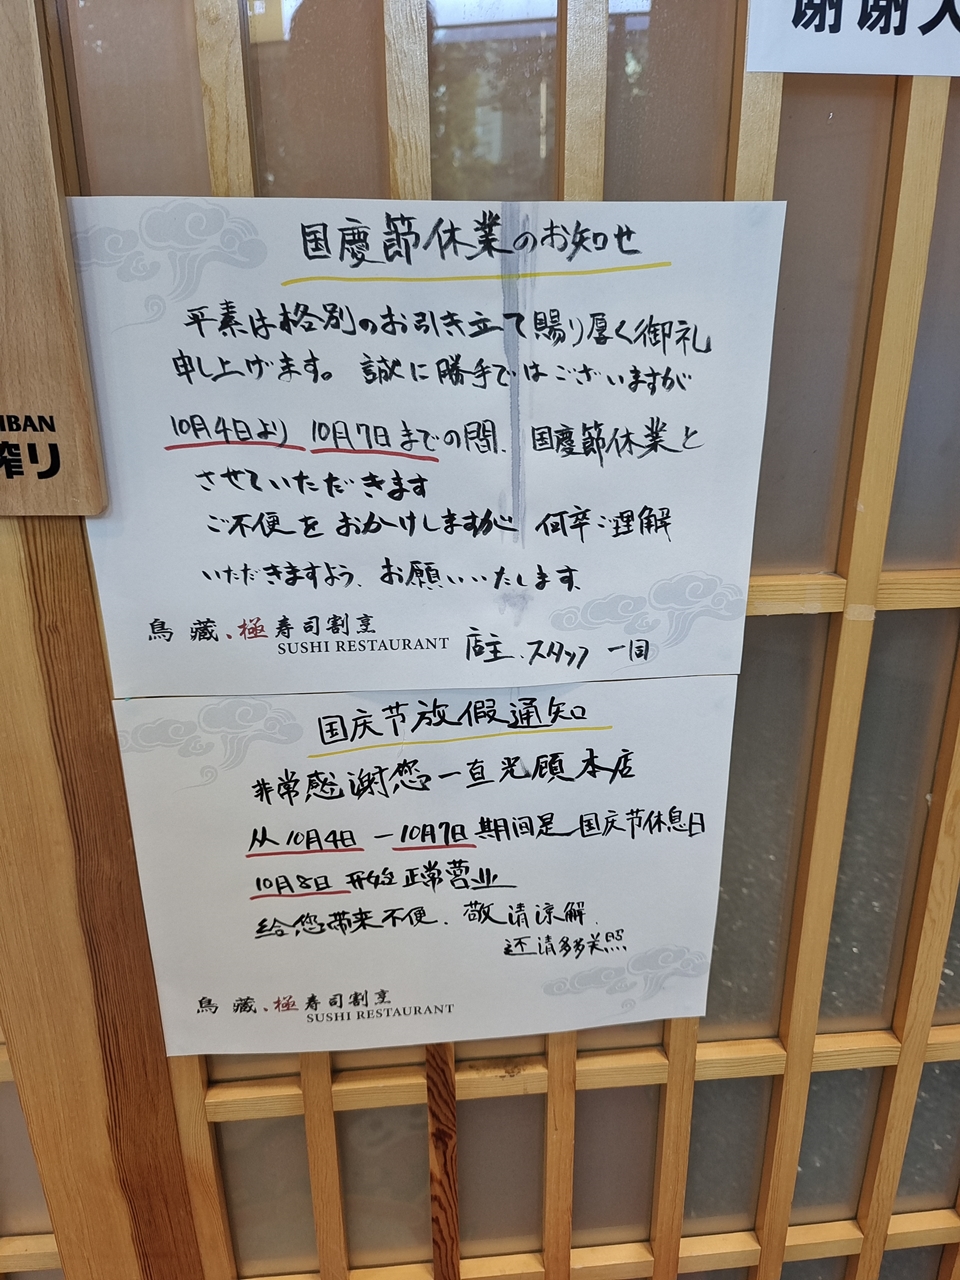 谢谢
IBAN
搾り
国慶節休業のお知せ
平素は格別のお引き立て賜り厚く御礼
申し上げます。誠に勝手ではございますが
10月4日より 10月7日までの間、国慶節休業と
させていただきます
ご不便をおかけしますが 何卒ご理解
いただきますよう、お願いいたします。
鳥藏、極 寿司割烹
SUSHI RESTAURANT
店主、スタッフ 一同
国庆节放假通知
非常感谢您一直光顾本店
从10月4日 — 10月7日 期间是 国庆节休息日
10月8日 开始 正常营业
给您带来不便、敬请凉解、
还请多多关照
鳥藏、極 寿司割烹
SUSHI RESTAURANT